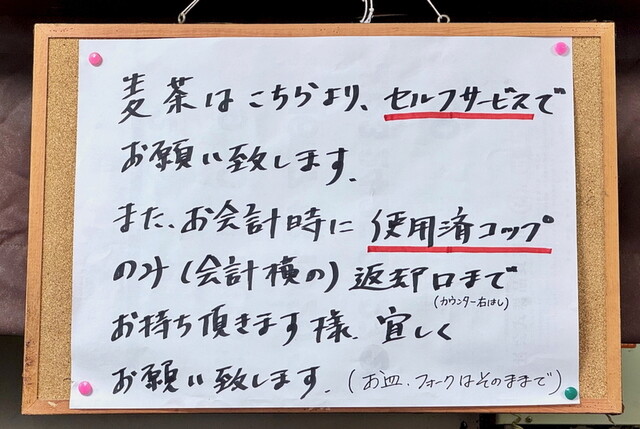 麦茶はこちらより、セルフサービスで
お願い致します。
また、お会計時に使用済コップ
のみ(会計横の)返却口まで
(カウンター右はし)
お持ち頂きます様、宜しく
お願い致します。(お皿、フォークはそのままで)